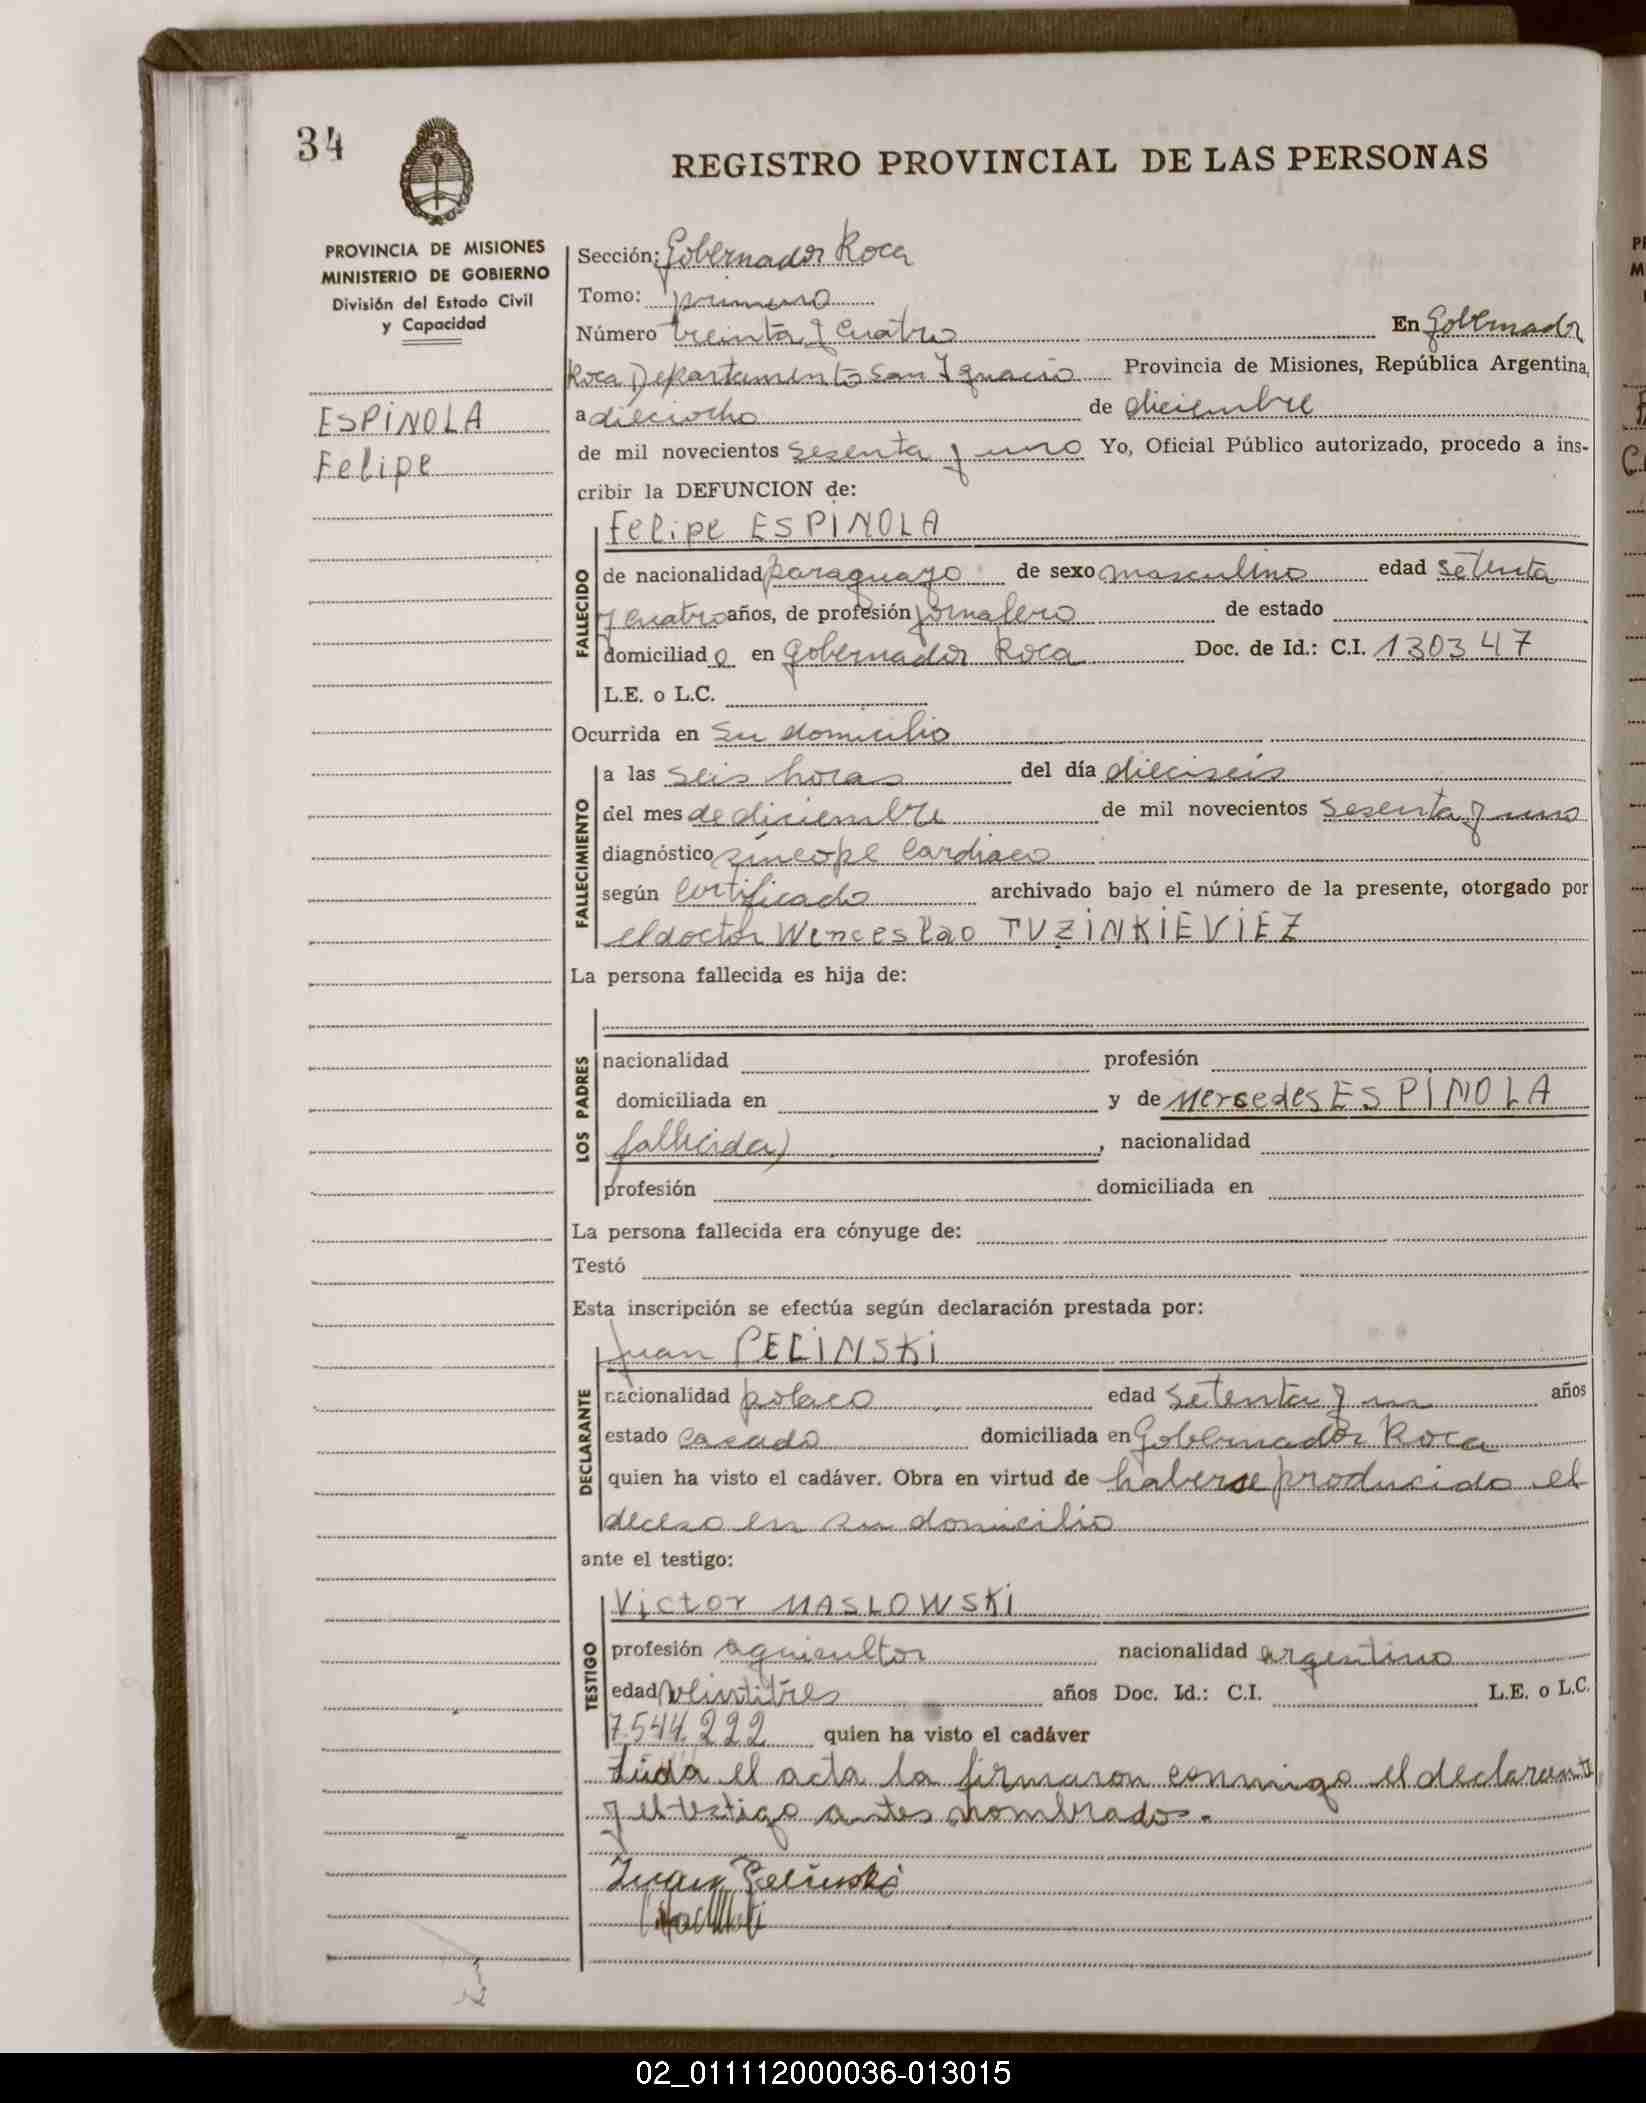 34
REGISTRO PROVINCIAL DE LAS PERSONAS
PROVINCIA DE MISIONES
MINISTERIO DE GOBIERNO
División del Estado Civil
y Capacidad
ESPINOLA
Felipe
Sección: Gobernador Roca
Tomo: primero
Número treinta y cuatro En Gobernador
Roca, Departamento San Ignacio Provincia de Misiones, República Argentina,
a dieciocho de diciembre
de mil novecientos sesenta y uno Yo, Oficial Público autorizado, procedo a ins-
cribir la DEFUNCION de:
FALLECIDO
Felipe ESPINOLA
de nacionalidad paraguayo de sexo masculino edad setenta
y cuatro años, de profesión jornalero de estado
domiciliado en Gobernador Roca Doc. de Id.: C.I. 130347
L.E. o L.C.
Ocurrida en su domicilio
FALLECIMIENTO
a las seis horas del día dieciseis
del mes de diciembre de mil novecientos sesenta y uno
diagnóstico síncope cardiaco
según certificado archivado bajo el número de la presente, otorgado por
el doctor Wenceslao TUZINKIEVIEZ
La persona fallecida es hija de:
LOS PADRES
nacionalidad profesión
domiciliada en y de Mercedes ESPINOLA
fallecida) , nacionalidad
profesión domiciliada en
La persona fallecida era cónyuge de:
Testó
Esta inscripción se efectúa según declaración prestada por:
DECLARANTE
Juan PELINSKI
nacionalidad polaco edad setenta y un años
estado casado domiciliada en Gobernador Roca
quien ha visto el cadáver. Obra en virtud de haberse producido el
deceso en su domicilio
ante el testigo:
TESTIGO
Victor MASLOWSKI
profesión agricultor nacionalidad argentino
edad veintitres años Doc. Id.: C.I. L.E. o L.C.
7.544.222 quien ha visto el cadáver
Leída el acta la firmaron conmigo el declarante
y el testigo antes nombrados.
Juan Pelinski
02_011112000036-013015